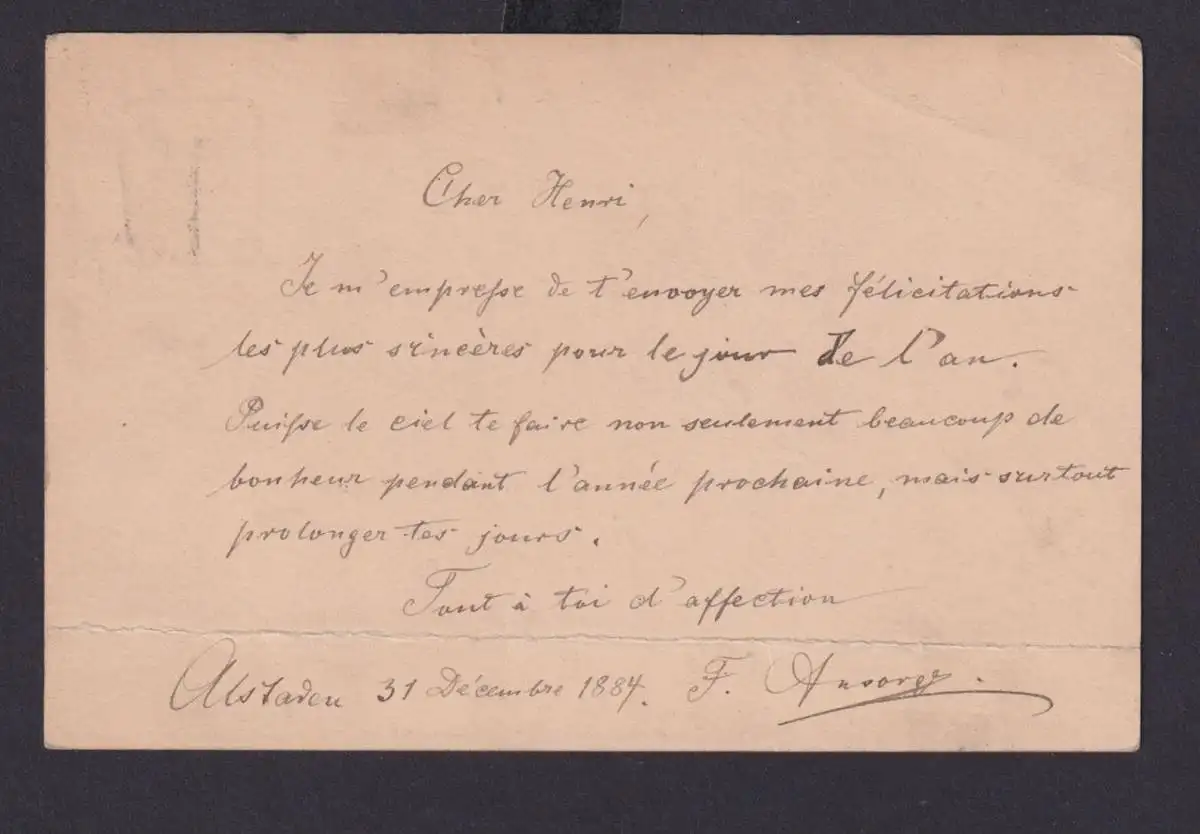 Cher Henri,
Je m'empresse de t'envoyer mes félicitations
les plus sincères pour le jour de l'an.
Puisse le ciel te faire non seulement beaucoup de
bonheur pendant l'année prochaine, mais surtout
prolonger tes jours.
Tout à toi d'affection
Alstaden 31 Décembre 1884. F. Ansorge.